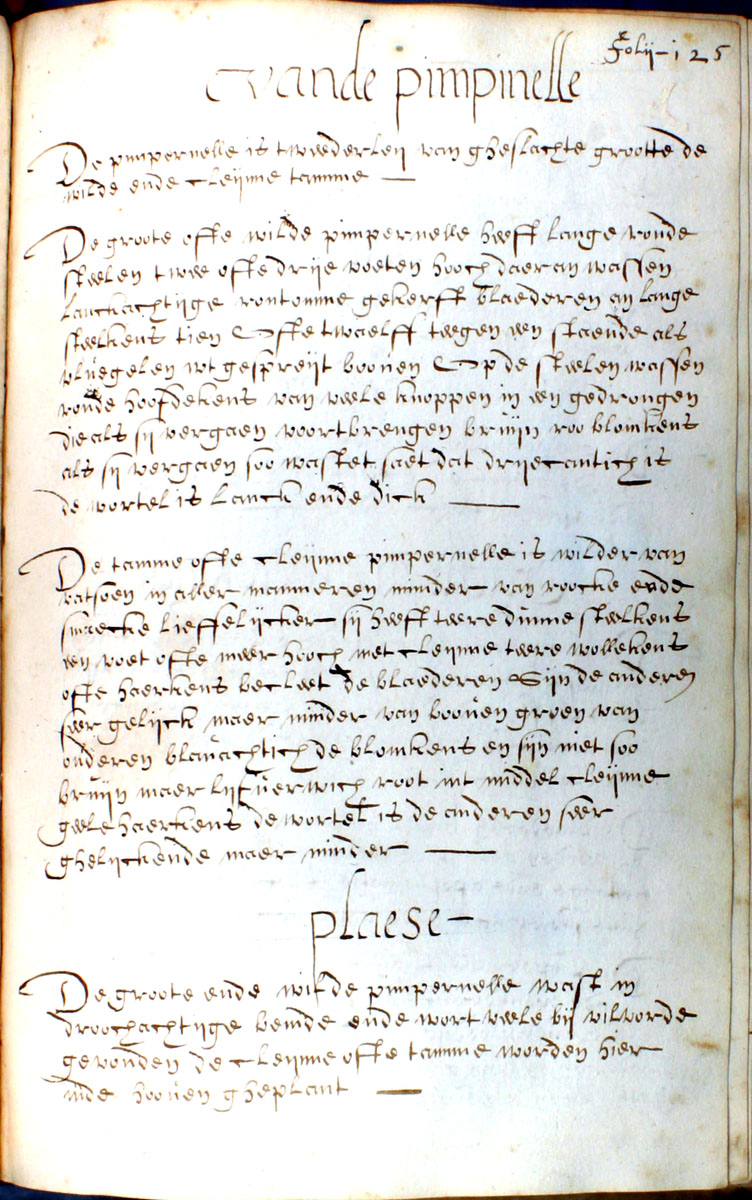 Folij 125
vande pimpinelle
De pimpernelle is tweederleij van gheslachte grootte de
wilde ende cleijnne tamme
De groote ofte wilde pimpernelle heeft lange ronde
steelen twee ofte drije voeten hooch daer an wassen
lanckachtijge rontomme gekerfft blaederen an lange
steelkens tien Ofte twaelff tegen een staende als
vluegelen wt gespreijt booven Op de steelen wassen
ronde hoofdekens van veele knoppen in een gedrongen
die als sij vergaen voortbrengen bruijn roo blomkens
als sij vergaen soo wastet saet dat drijecantich is
de wortel is lanck ende dick
De tamme ofte cleijnne pimpernelle is wilder van
fatsoen in aller manneren minder van roocke ende
smaecke lieffelijcker sij heeft teere dunne steelkens
een voet ofte meer hooch met cleijnne teere wollekens
ofte haerkens becleet de blaederen Sijn de anderen
seer gelijck maer minder van booven groen van
onderen blauachtich de blomkens en sijn niet soo
bruijn maer lijfverwich root int middel cleijnne
geele haerkens de wortel is de anderen seer
ghelijckende maer minder
plaese
De groote ende wilde pimpernelle wast in
droochachtijge bemde ende wort veele bij vilvorde
gevonden de cleijnne ofte tamme worden hier
inde hooven gheplant